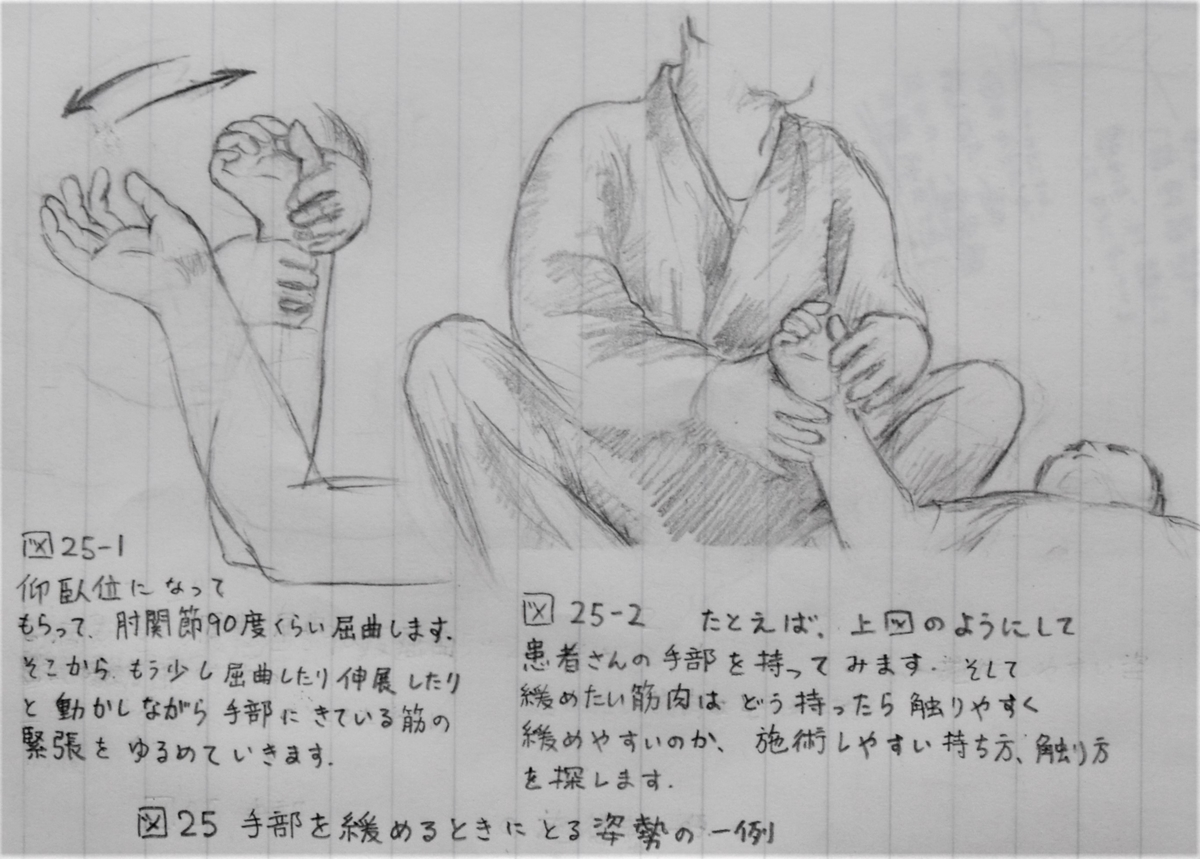 図25-1
仰臥位になって
もらって、肘関節90度くらい屈曲します.
そこから、もう少し屈曲したり伸展したり
と動かしながら手部にきている筋の
緊張をゆるめていきます.
図25-2 たとえば、上図のようにして
患者さんの手部を持ってみます. そして
緩めたい筋肉はどう持ったら触りやすく
緩めやすいのか、施術しやすい持ち方、触り方
を探します.
図25 手部を緩めるときにとる姿勢の一例